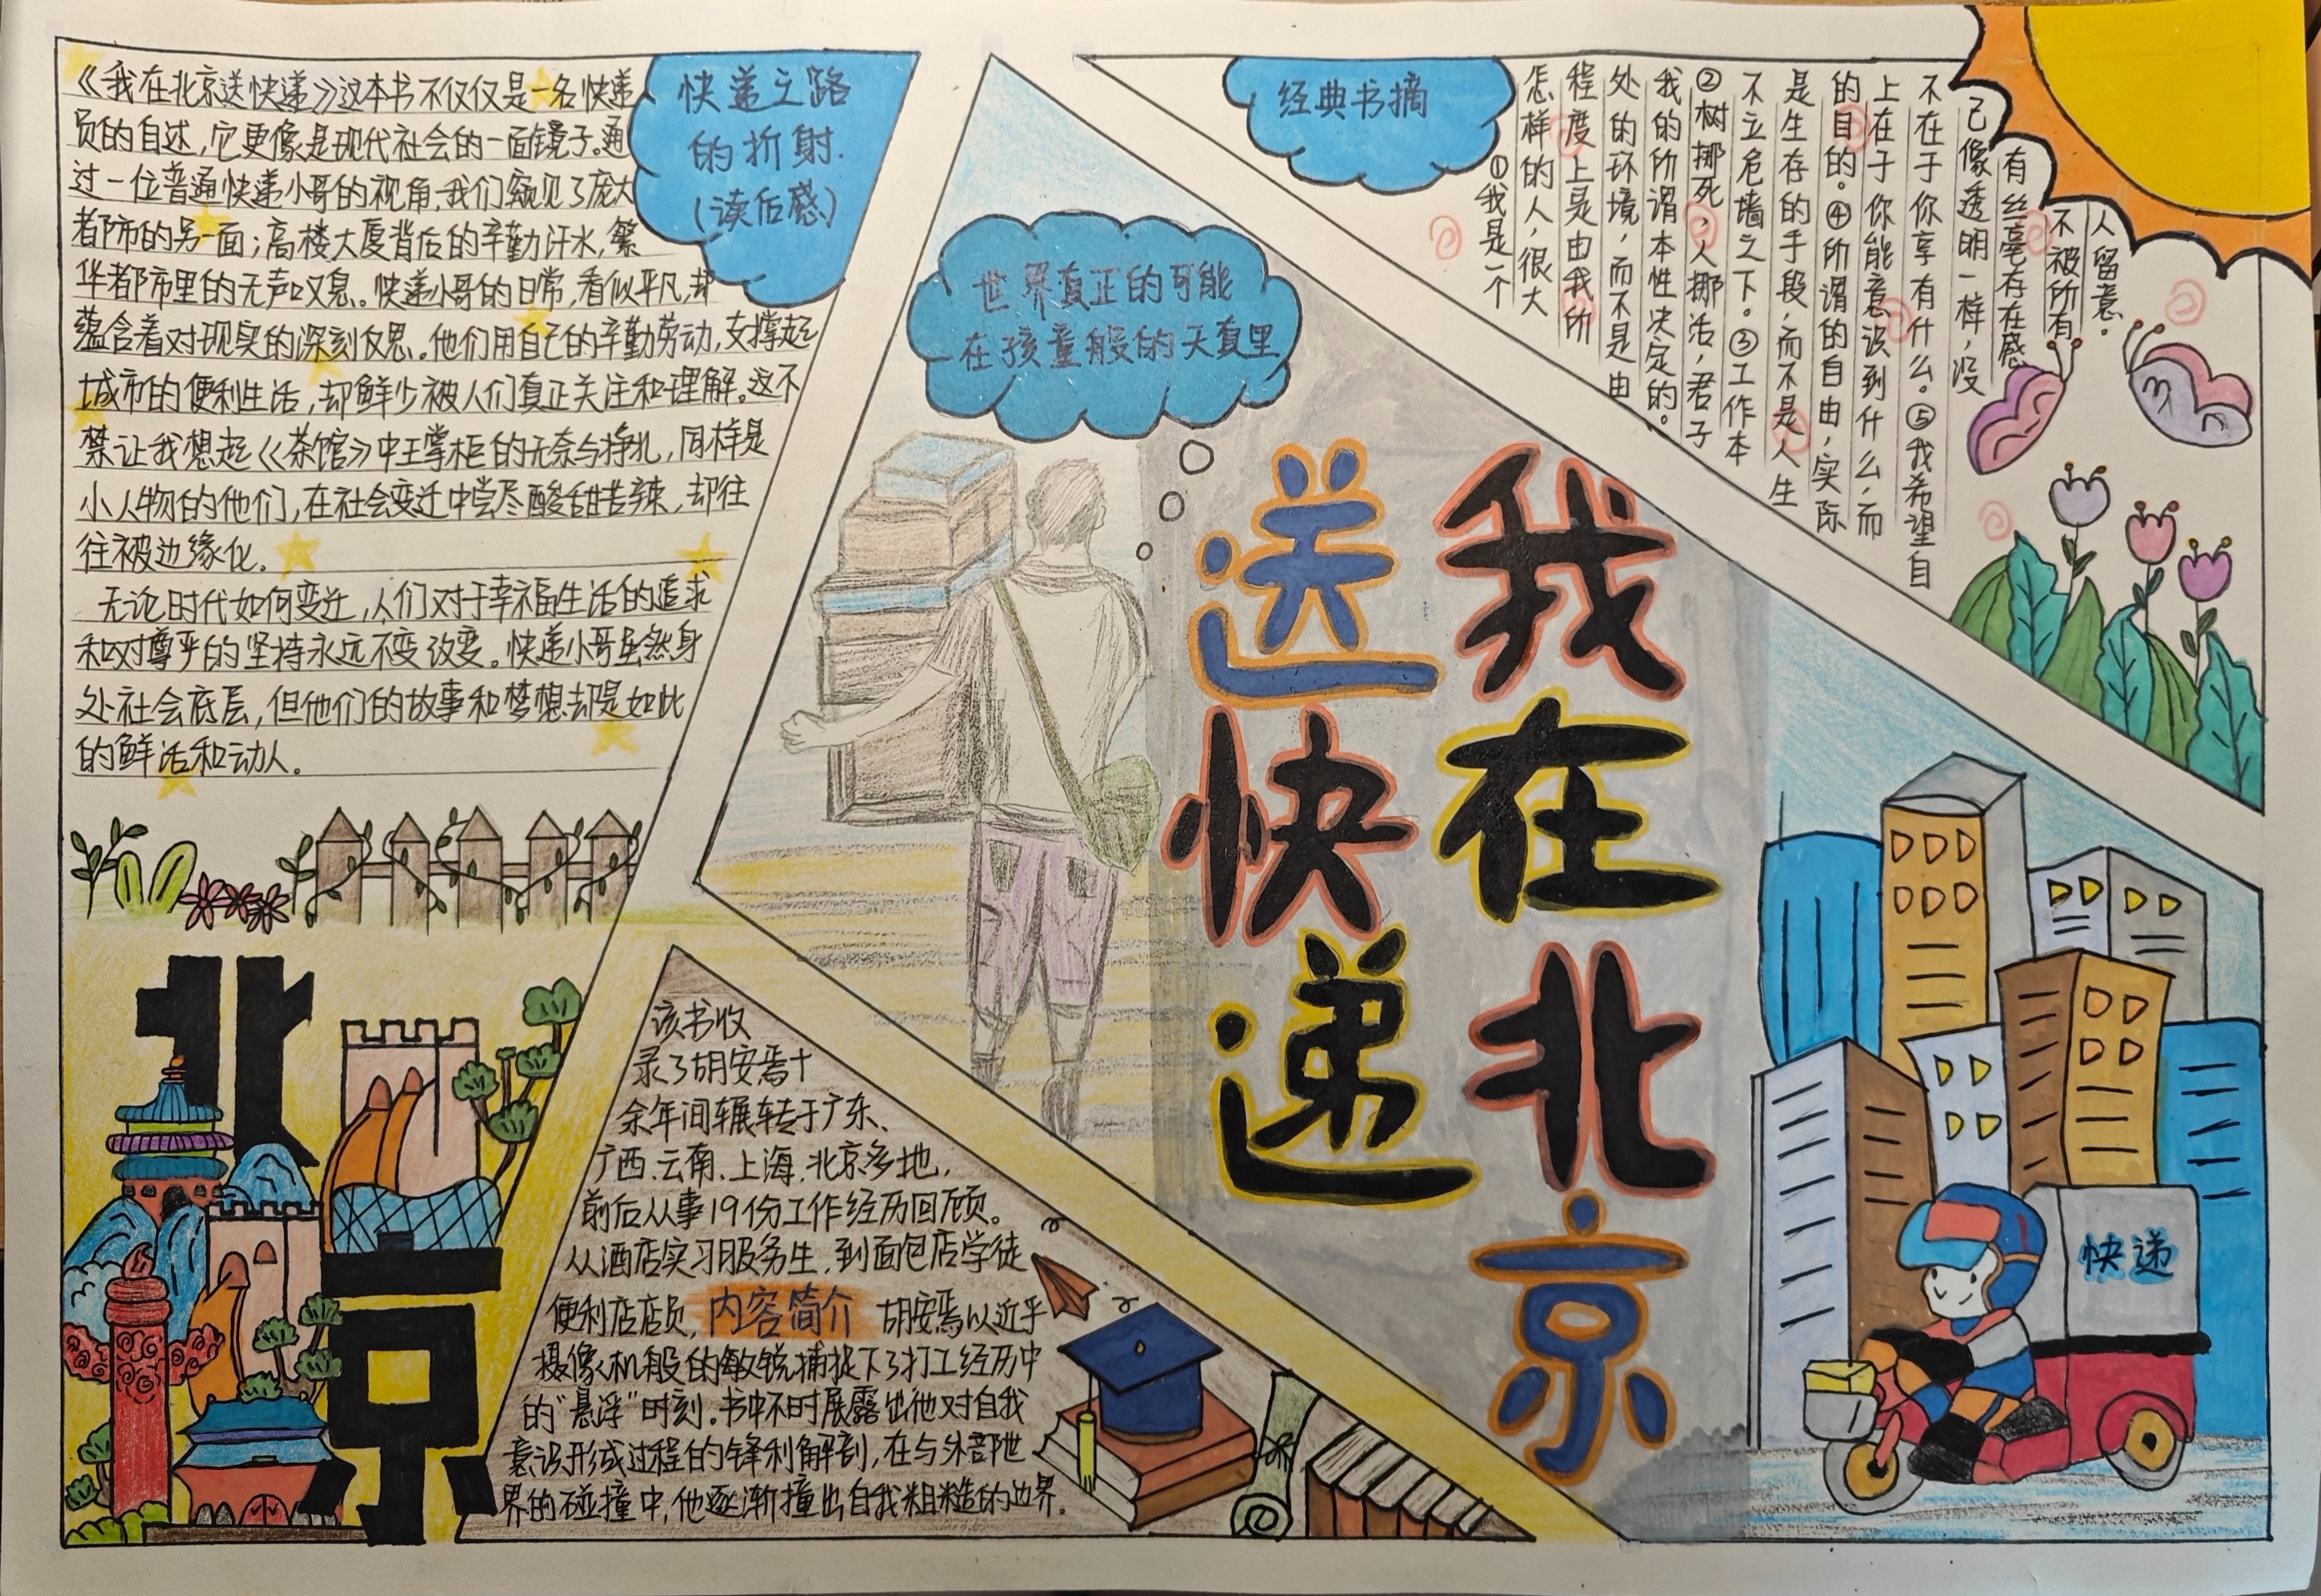 《我在北京送快递》这本书不仅仅是一名快递
员的自述，它更像是现代社会的一面镜子。通
过一位普通快递小哥的视角，我们窥见了庞大
都市的另一面；高楼大厦背后的辛勤汗水，繁
华都市里的无声叹息。快递小哥的日常，看似平凡，却
蕴含着对现实的深刻反思。他们用自己的辛勤劳动，支撑起
城市的便利生活，却鲜少被人们真正关注和理解。这不
禁让我想起《茶馆》中王掌柜的无奈与挣扎，同样是
小人物的他们，在社会变迁中尝尽酸甜苦辣，却往
往被边缘化。
无论时代如何变迁，人们对于幸福生活的追求
和对尊严的坚持永远不变改变。快递小哥虽然身
处社会底层，但他们的故事和梦想却是如此
的鲜活和动人。
快递之路
的折射.
（读后感）
世界真正的可能
在孩童般的天真里
我在北京
送快递
经典书摘
①我是一个
怎样的人，很大
程度上是由我所
处的环境，而不是由
我的所谓本性决定的。
②树挪死，人挪活，君子
不立危墙之下。③工作本
是生存的手段，而不是人生
的目的。④所谓的自由，实际
上在于你能意识到什么，而
不在于你享有什么。⑤我希望自
己像透明一样，没
有丝毫存在感
不被所有
人留意。
北京
该书收
录了胡安焉十
余年间辗转于广东、
广西、云南、上海、北京多地，
前后从事19份工作经历回顾。
从酒店实习服务生，到面包店学徒
便利店店员，内容简介 胡安焉以近乎
摄像机般的敏锐捕捉下了打工经历中
的“悬浮”时刻。书中不时展露出他对自我
意识形成过程的锋利解剖，在与外部世
界的碰撞中，他逐渐撞出自我粗糙的边界。
快递